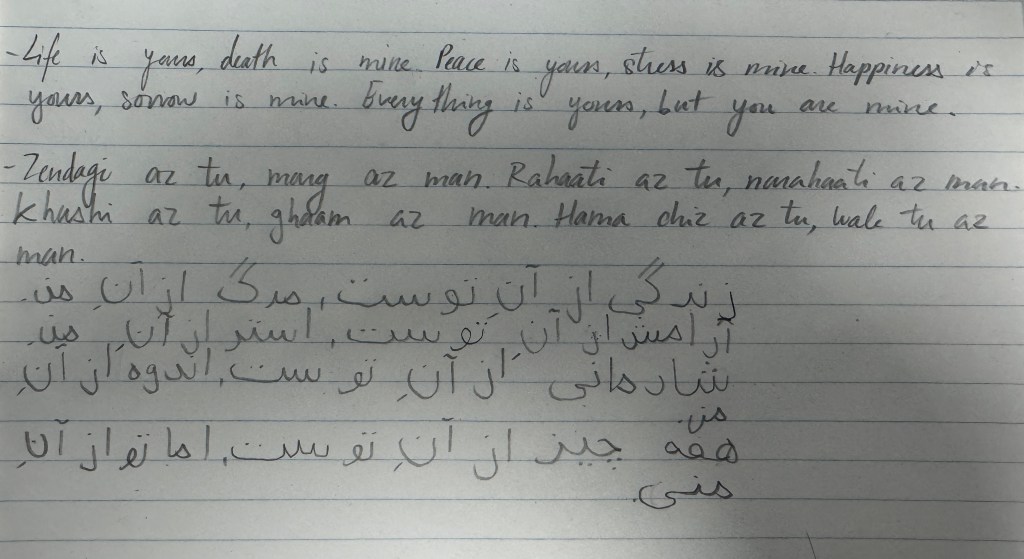 -Life is yours, death is mine. Peace is yours, stress is mine. Happiness is
yours, sorrow is mine. Everything is yours, but you are mine.
-Zendagi az tu, marg az man. Rahaati az tu, narahaati az man.
Khushi az tu, ghaam az man. Hama chiz az tu, wale tu az
man.
زندگی از آنِ توست, مرگ از آنِ من.
آرامش از آنِ توست, استر از آنِ من.
شادمانی از آنِ توست, اندوه از آنِ
من.
همه چیز از آنِ توست, اما تو از آنِ
منی.